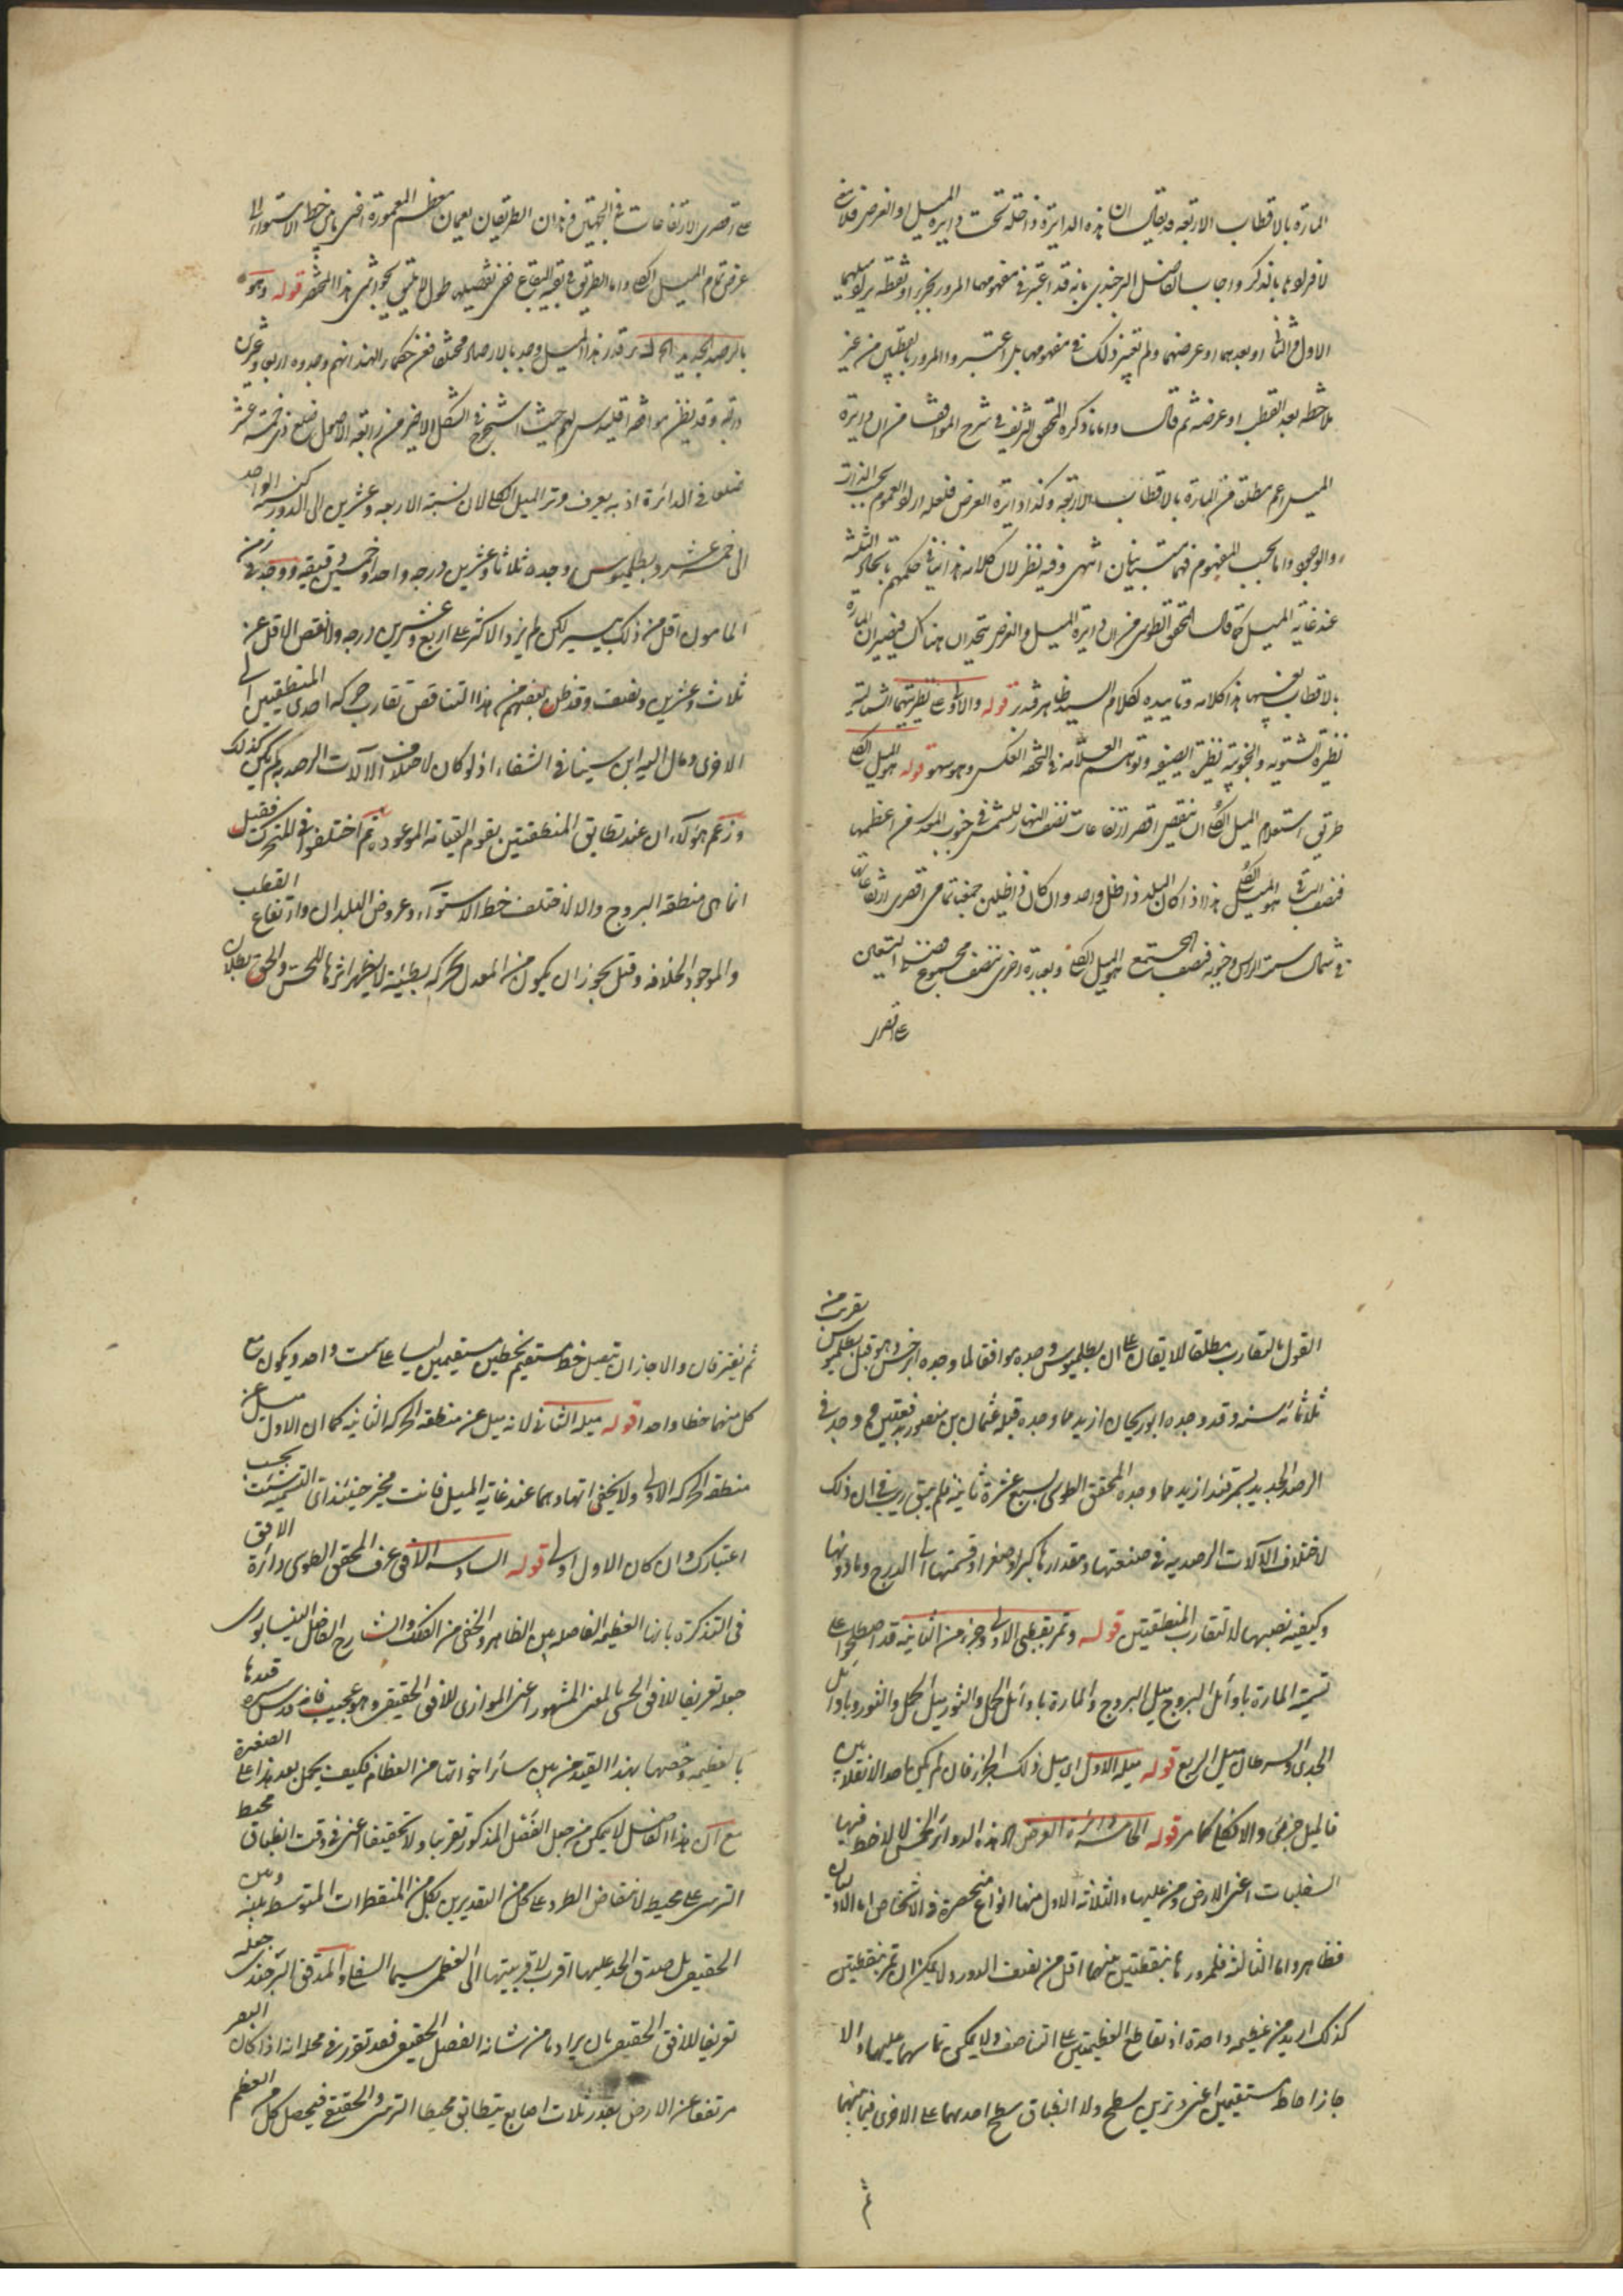 المارة بالاقطاب الاربعة قد يقال ان هذه الدايرة داخلة تحت دايرة الميل او العرض فلا
لافرادها بالذكر واجاب الفاضل البرجندي بانه قد اعتبر في مفهومها المرور بجزء او نقطة يراد ميلهما
الاول او الثاني او بعدهما او عرضهما ولم يعتبر ذلك في مفهومها بل اعتبروا المرور بالقطبين من غير
ملاحظة بعد القطب او عرضه ثم قال واما ما ذكره المحقق الشريف في شرح المواقف من ان دايرة
الميل اعم مطلقا من المارة بالاقطاب الاربعة وكذا دايرة العرض فلعله اراد العموم بحسب الذات
والوجود واما بحسب المفهوم فهما متباينان انتهى وفيه نظر لان كلامه هذا ينافي حكمهم باتحاد الثلثة
عند غاية الميل كما قال المحقق الطوسي من ان دايرة الميل والعرض يتحدان هناك فيصيران المارة
بالاقطاب بعينها هذا كلامه وتاييده لكلام السيد ظاهر فتدبر قوله والاولى نظيرتهما الشمالية
نظيرة الشتوية والجنوبية نظيرة الصيفية وتوهم العلامة في التحفة العكس وهو سهو قوله هو الميل الكلي
طريق استعلام الميل الكلي ان ينقص اقصر ارتفاعات نصف النهار للشمس في جنوب البلد من اعظمها
فنصف الباقي هو الميل الكلي هذا اذا كان البلد ذا ظل واحد وان كان ذا ظلين جمعنا تمامي اقصى ارتفاعاته
في شمال سمت الراس وجنوبه فنصف المجتمع هو الميل الكلي وبعبارة اخرى ننصف مجموع
على اقصر
على اقصى الارتفاعات في الجهتين وهذان الطريقان يعمان معظم المعمورة اعني ما بين خط الاستواء الى
عرض تمام الميل الكلي واما الطريق في بقية البقاع ففي تفصيلها طول لا يليق بحواشي هذا المختصر قوله وهو
بالرصد الجديد الخ قد قدر هذا الميل وجد بالارصاد مختلفا فعن حكماء الهند انهم وجدوه اربعا وعشرين
درجة وقد يظن موافقة اقليدس لهم حيث استخرج في الشكل الاخير من رابعة الاصول ضلع ذي خمسة عشر
ضلعا في الدائرة اذ به يعرف وتر الميل الكلي لان نسبة الاربعة وعشرين الى الدور كنسبة الواحد
الى خمسة عشر وبطلميوس وجده ثلاثا وعشرين درجة واحدى وخمسين دقيقة ووجد في زمن
المامون اقل من ذلك بيسير لكن لم يزد الاكثر على اربع وعشرين درجة ولا نقص الاقل عن
ثلاث وعشرين ونصف وقد ظن بعضهم من هذا التناقص تقارب حركة احدى المنطقتين الى
الاخرى ومال اليه ابن سينا في الشفاء اذ لو كان لاختلاف الآلات الرصدية لم يكن كذلك
وزعم هؤلاء ان عند تطابق المنطقتين يقوم القيامة الموعودة ثم اختلفوا في المتحرك فقيل
انما هي منطقة البروج والا لاختلف خط الاستواء وعروض البلدان وارتفاع القطب
والموجود خلافه وقيل يجوز ان يكون من المعدل بحركة بطيئة لا يظهر اثرها للحس والحق بطلان
القول بالتقارب مطلقا لا يقال على ان بطلميوس وجده موافقا لما وجده ابرخس وهو قبل بطلميوس بقريب من
ثلاثمائة سنة وقد وجده ابو ريحان ازيد مما وجده قبله عثمان بن منصور بدقيقتين ووجد في
الرصد الجديد بسمرقند ازيد مما وجده المحقق الطوسي بسبع عشرة ثانية فلم يبق ريب في ان ذلك
لاختلاف الآلات الرصدية في صنعتها ومقدارها كبرا وصغرا وقسمتها الى الدرج وما دونها
وكيفية نصبها لا لتقارب المنطقتين قوله وتمر بقطبي الاولى وجزء من الثانية قد اصطلحوا على
تسمية المارة باوائل البروج ميل البروج والمارة باوائل الحمل والثور ميل الحمل والثور وباوائل
الجدي والسرطان ميل الربع قوله ميله الاول اي ميل ذلك الجزء فان لم يكن احد الانقلابين
فالميل جزئي والا فكلي كما مر قوله الخامسة دائرة العرض الخ هذه الدوائر الخمس لا لاحظ فيها
السفليات اعني الارض ومن عليها والثلاثة الاول منها انواع منحصرة في الاشخاص اما الاوليان
فظاهر واما الثالثة فلمرورها بنقطتين بينهما اقل من نصف الدور ولا يمكن ان تمر بنقطتين
كذلك ازيد من عظيمة واحدة اذ تقاطع العظيمتين على التناصف ولا يمكن تماسهما عليهما والا
جاز احاطة مستقيمين اعني وترين بسطح ولا انطباق سطح احدهما على الاخرى فيما بينهما
ثم
ثم يفترقان والا جاز ان يتصل خط مستقيم بخطين مستقيمين ليسا على سمت واحد ويكون مع
كل منهما خطا واحدا قوله ميله الثاني لانه ميل عن منطقة الحركة الثانية كما ان الاول ميل عن
منطقة الحركة الاولى ولا يخفى اتحادهما عند غاية الميل فانت مخير حينئذ في التسمية بحسب
اعتبارك وان كان الاول اولى قوله السادسة الافق عرف المحقق الطوسي دائرة الافق
في التذكرة بانها العظيمة الفاصلة بين الظاهر والخفي من الفلك والشارح الفاضل النيسابوري
جعله تعريفا للافق الحسي بالمعنى المشهور اعني الموازي للافق الحقيقي وهو عجيب فانه قدس سره قيدها
بالعظيمة وخصها بهذا القيد من بين سائر اخواتها من العظام فكيف يحمل بعد هذا على الصغيرة
مع ان هذا الفاضل لا يمكن من جعل الفصل المذكور تقريبا ولا تحقيقا اعني في وقت انطباق محيط
الترسي على محيط لانتقاض الطرد على كل من التقديرين بكل من المقنطرات المتوسطة بينه وبين
الحقيقي بل صدق الحد عليها اقرب لاقربيتها الى العظمى سيما السفلى والمدقق البرجندي جعله
تعريفا للافق الحقيقي بان يراد ما من شانه الفصل الحقيقي فقد تقرر في محله انه اذا كان البصر
مرتفعا عن الارض بقدر ثلاث اصابع يتطابق محيطا الترسي والحقيقي فيحصل كل من العظم